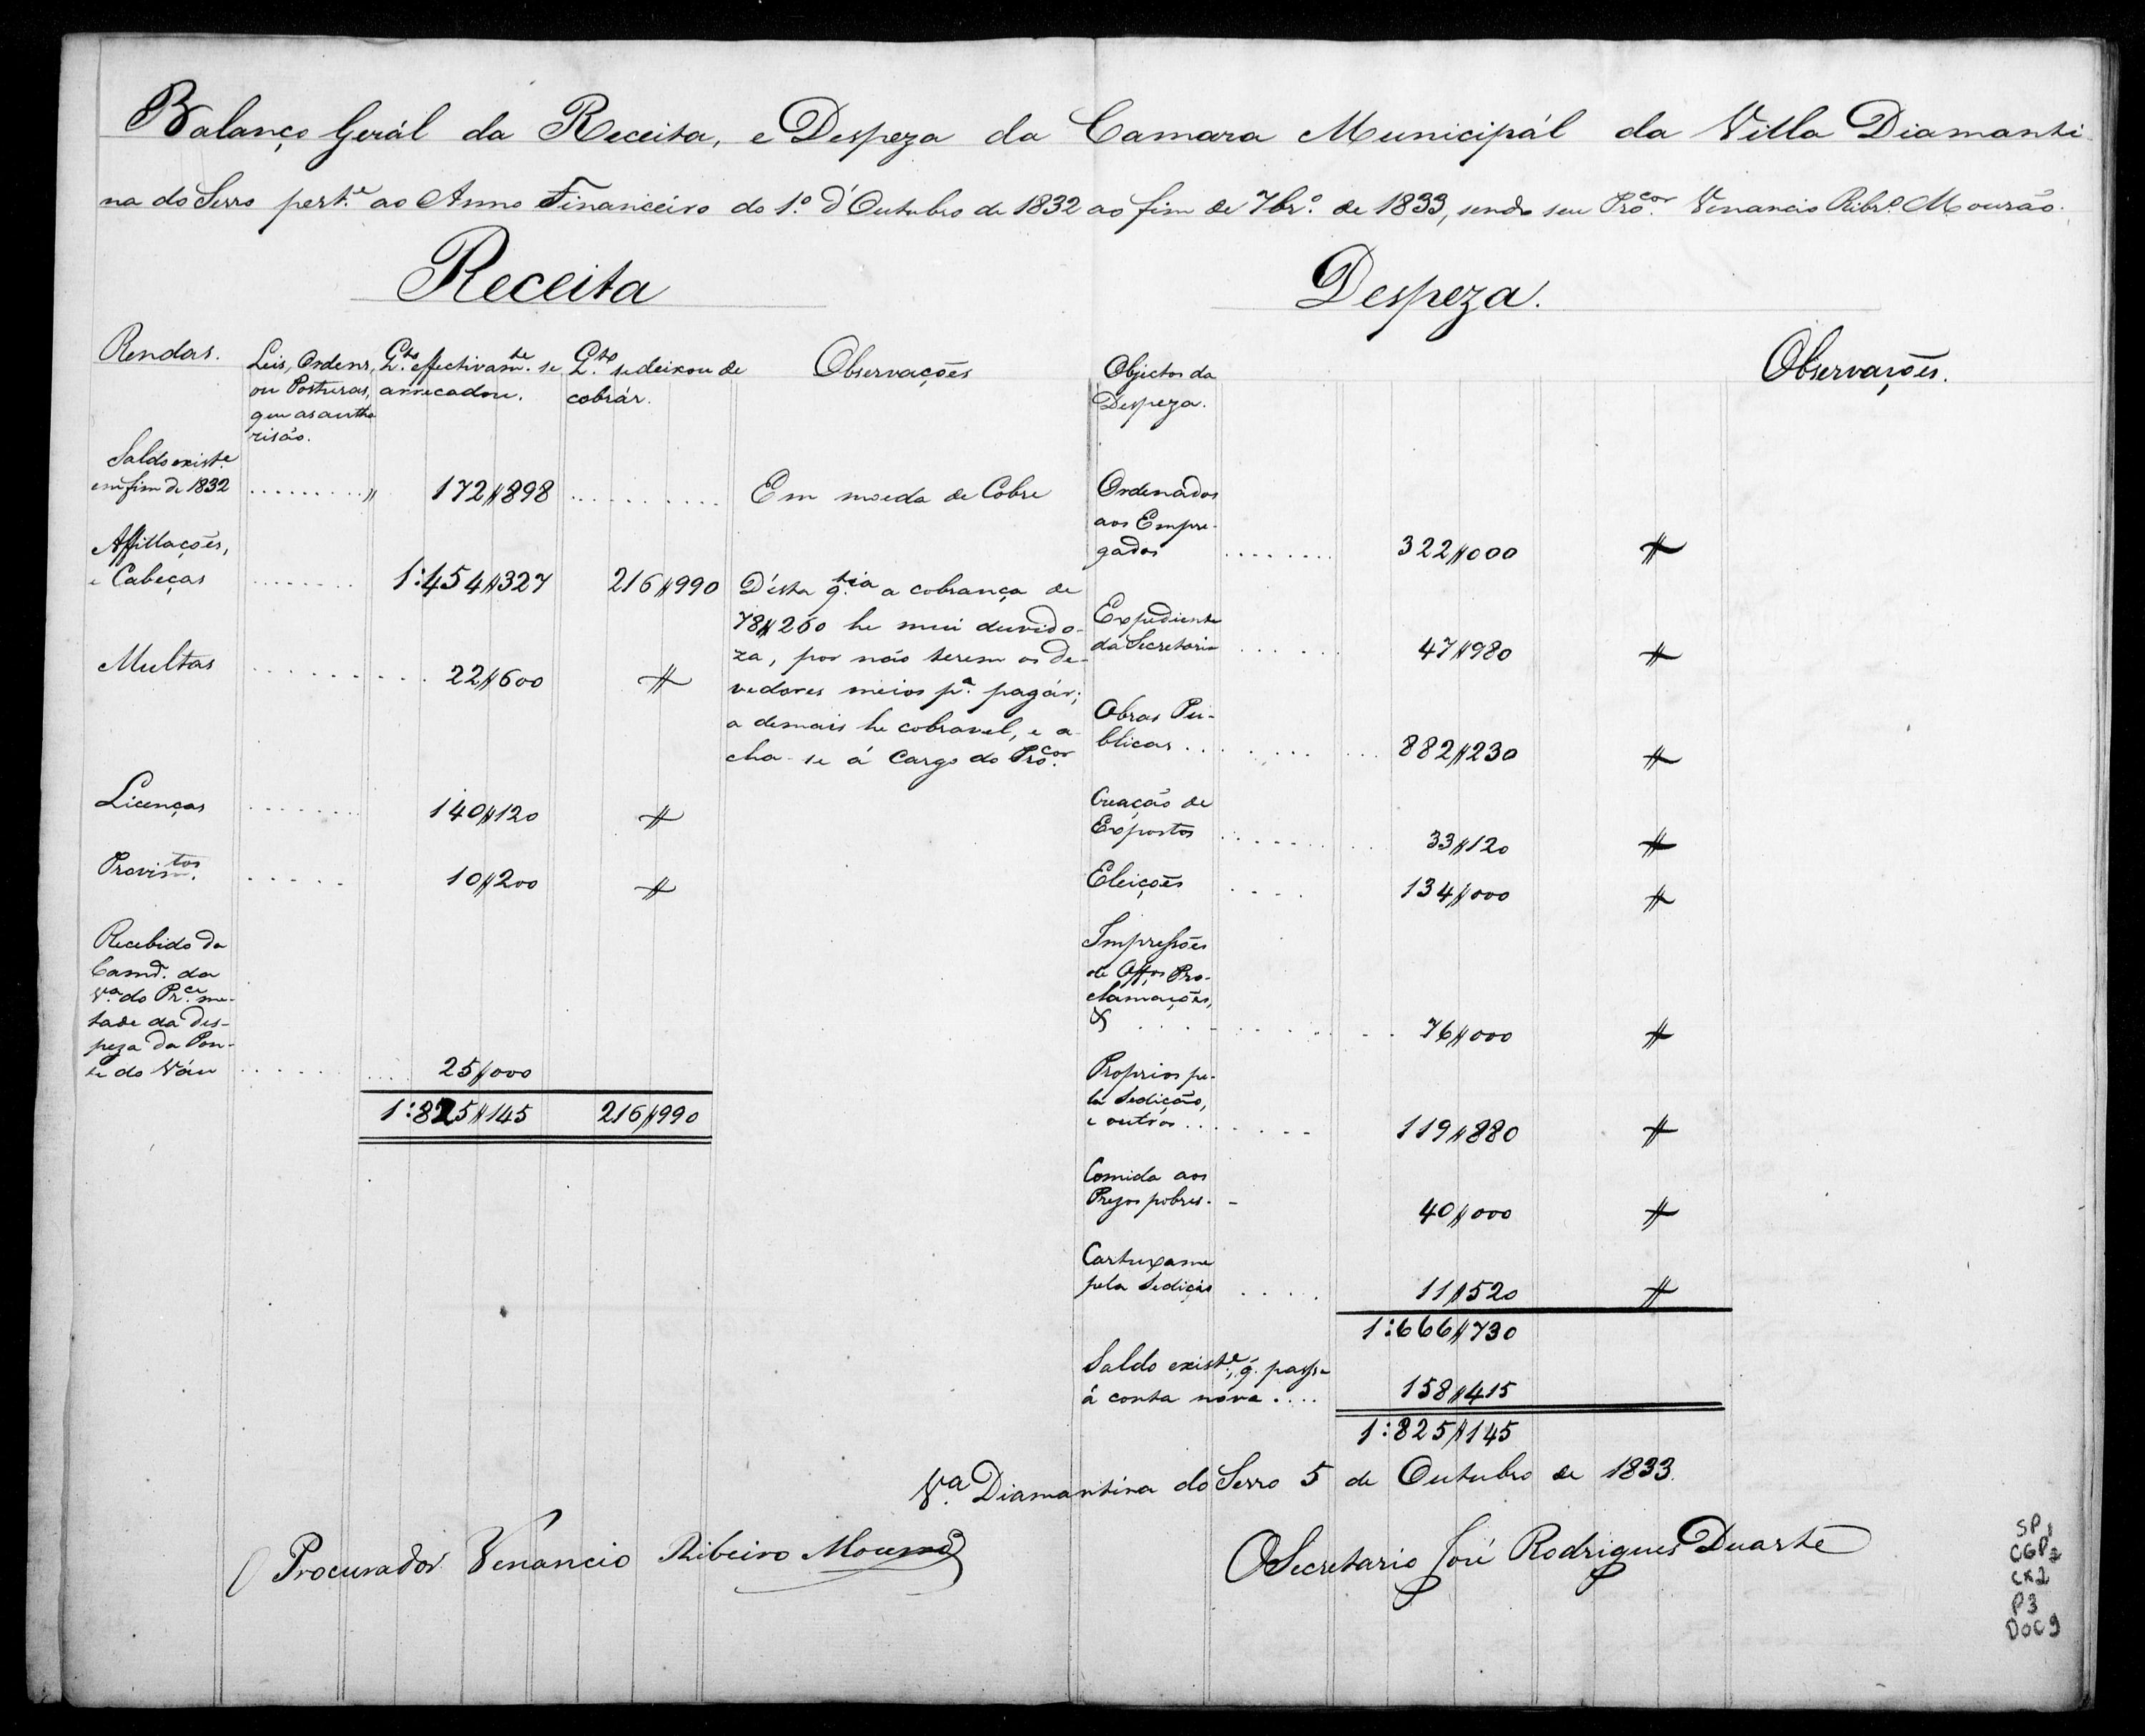 Balanço Geral da Receita, e Despeza da Camara Municipál da Villa Diamanti
na do Serro pert.e ao Anno Financeiro do 1.o d'Outubro de 1832 ao fim de 7br.o de 1833, sendo seu Pro.cor Venancio Ribr.o Mourão.
Receita
Rendas.
Leis, Ordens,
ou Posturas,
que as autho
risão.
Q.to effectivam.te se
arrecadou.
Q.to se deixou de
cobrár.
Observações
Saldo exist.e
em fim de 1832 . . . . . . . . . " 172$898 . . . . . . . . . . Em moeda de Cobre
Affillações,
e Cabeças . . . . . . . 1:454$327 216$990 D'esta q.tia a cobrança de
78$260 he mui duvido-
za, por não terem os de-
vedores meios p.a pagár;
a demais he cobravel, e a
cha-se á cargo do Pro.cor
Multas . . . . . . . . . . 22$600 $
Licenças . . . . . . . 140$120 $
Provim.tos . . . . . 10$200 $
Recebido da
Cam.a da
V.a do Pr.ce me-
tade da des-
peza da Pon-
te do Váu . . . . . . 25$000
1:825$145 216$990
Despeza.
Objectos da
Despeza.
Observações.
Ordenados
aos Empre-
gados . . . . . . . . 322$000 $
Expediente
da Secretaria . . . . . . 47$980 $
Obras Pu-
blicas . . . . . . . . . 882$230 $
Creação de
Expostos . . . . . . . . . 33$120 $
Eleições . . . . 134$000 $
Impressões
de Off.os Pro-
clamações,
& . . . . . . . . . . 76$000 $
Proprios pe-
la Sedição,
e outros . . . . . . . 119$880 $
Comida aos
Prezos pobres. - 40$000 $
Cartuxame
pela Sedição . . . . . 11$520 $
1:666$730
Saldo exist.e, q. passa
á conta nova . . . . 158$415
1:825$145
V.a Diamantina do Serro 5 de Outubro de 1833.
O Procurador Venancio Ribeiro Mourão
O Secretario José Rodrigues Duarte
SP1
CGP2
CX2
P3
DOC9